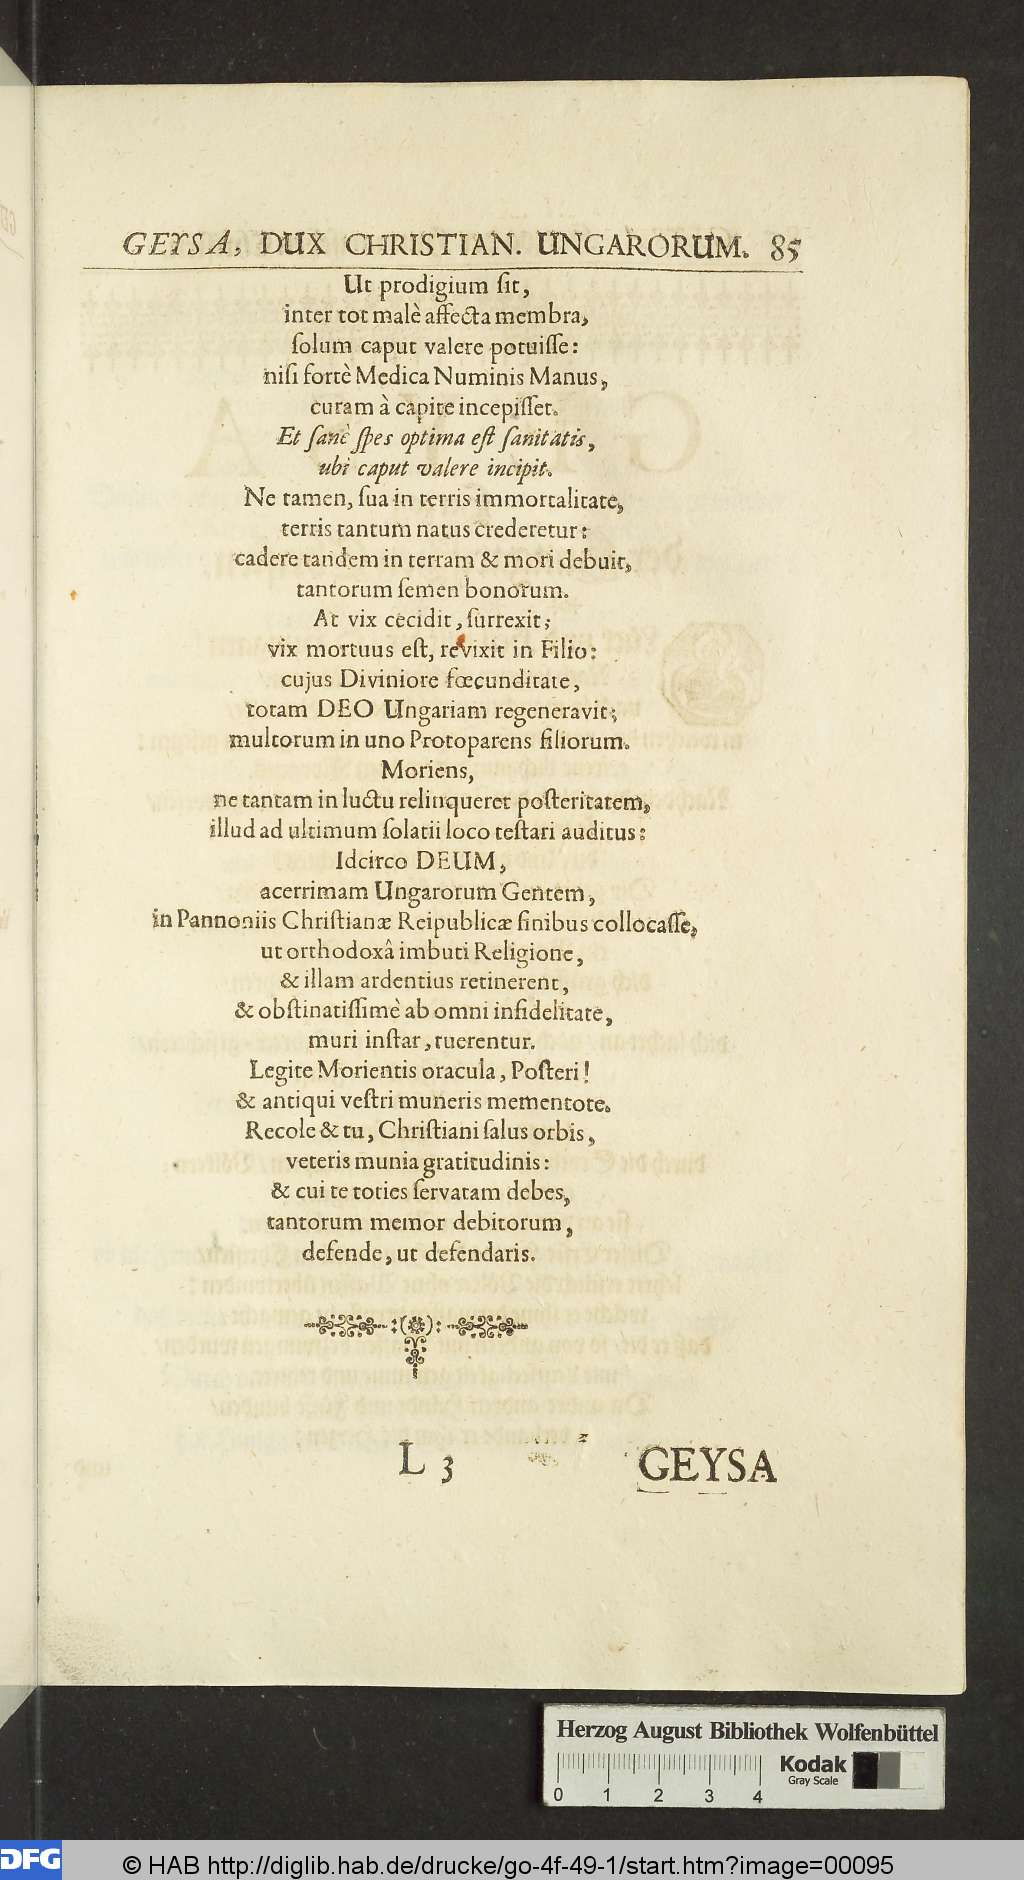 GEYSA, DUX CHRISTIAN. UNGARORUM. 85
Ut prodigium ſit,
inter tot malè affecta membra,
ſolum caput valere potuiſſe:
niſi fortè Medica Numinis Manus,
curam à capite incepiſſet.
Et ſanè ſpes optima eſt ſanitatis,
ubi caput valere incipit.
Ne tamen, ſua in terris immortalitate,
terris tantum natus crederetur:
cadere tandem in terram & mori debuit,
tantorum ſemen bonorum.
At vix cecidit, ſurrexit;
vix mortuus eſt, revixit in Filio:
cujus Diviniore fœcunditate,
totam DEO Ungariam regeneravit;
multorum in uno Protoparens filiorum.
Moriens,
ne tantam in luctu relinqueret poſteritatem,
illud ad ultimum ſolatii loco teſtari auditus:
Idcirco DEUM,
acerrimam Ungarorum Gentem,
in Pannoniis Chriſtianæ Reipublicæ finibus collocaſſe,
ut orthodoxâ imbuti Religione,
& illam ardentius retinerent,
& obſtinatiſſimè ab omni infidelitate,
muri inſtar, tuerentur.
Legite Morientis oracula, Poſteri!
& antiqui veſtri muneris mementote.
Recole & tu, Chriſtiani ſalus orbis,
veteris munia gratitudinis:
& cui te toties ſervatam debes,
tantorum memor debitorum,
defende, ut defendaris.
L 3 GEYSA
Herzog August Bibliothek Wolfenbüttel
0 1 2 3 4
Kodak
Gray Scale
DFG
© HAB http://diglib.hab.de/drucke/go-4f-49-1/start.htm?image=00095